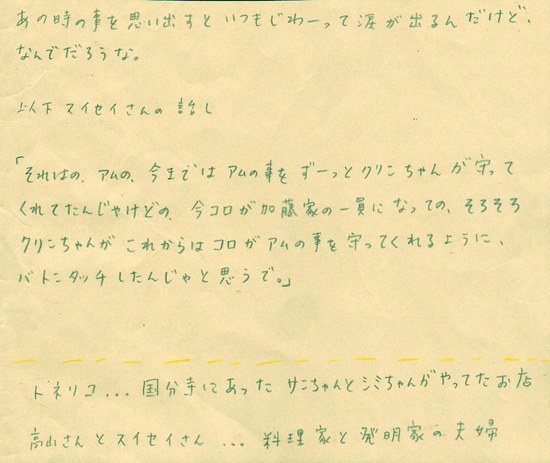 あの時の事を思い出すといつもじわーって涙が出るんだけど、
なんでだろうな。
以下スイセイさんの話し
「それはの、アムの、今まではアムの事をずーっとクリンちゃんが守って
くれてたんじゃけどの、今コロが加藤家の一員になっての、そろそろ
クリンちゃんがこれからはコロがアムの事を守ってくれるように、
バトンタッチしたんじゃと思うで。」
ドネリコ...国分寺にあったサンちゃんとシミちゃんがやってたお店
高山さんとスイセイさん...料理家と発明家の夫婦